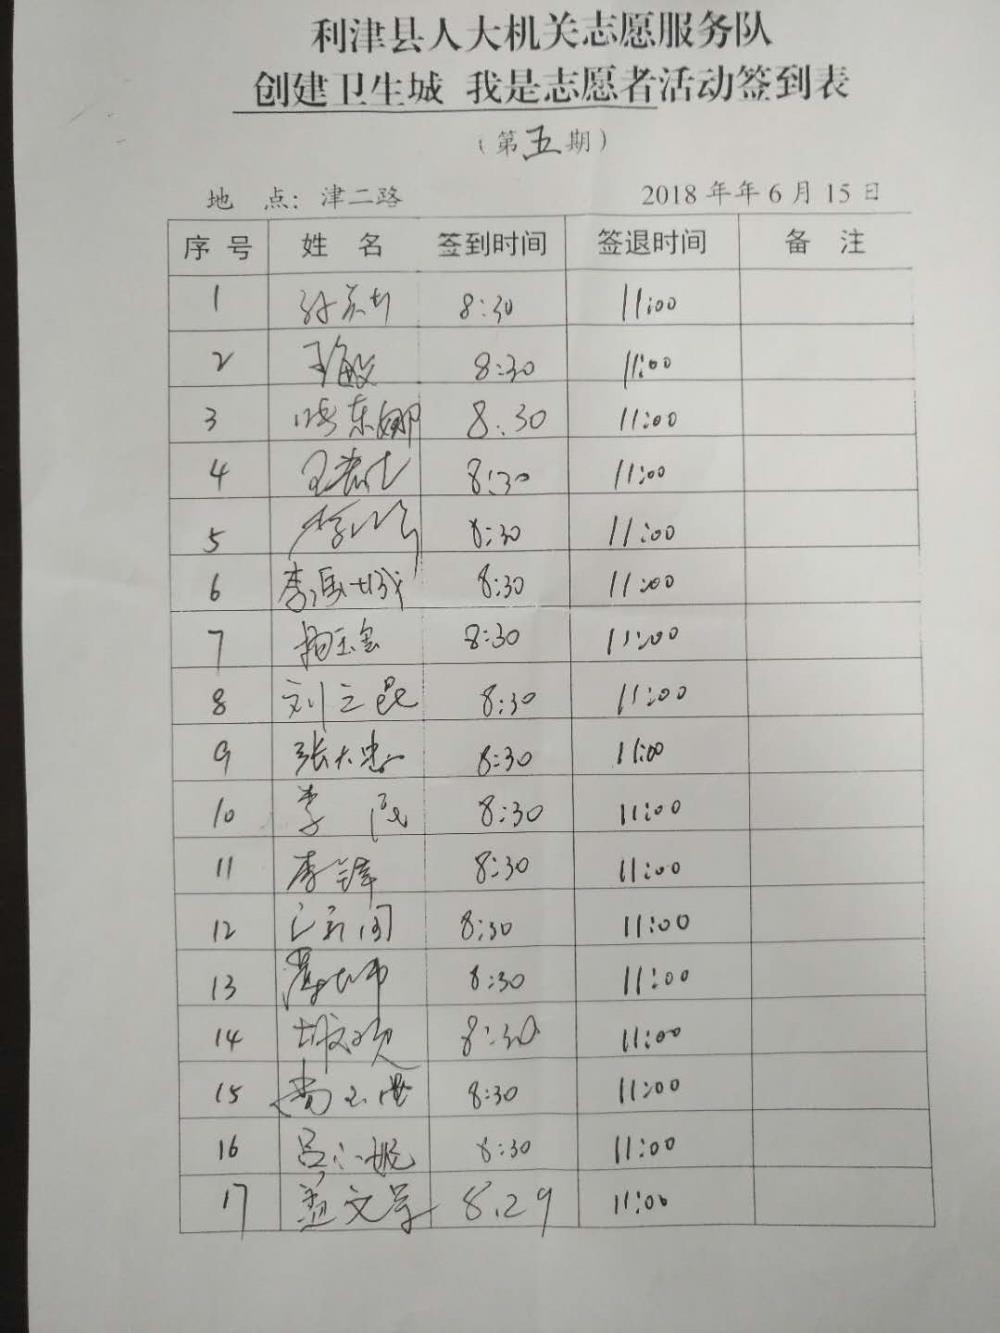 利津县人大机关志愿服务队
创建卫生城 我是志愿者活动签到表
(第五期)
地 点: 津二路 2018年年6月15日
序号 姓名 签到时间 签退时间 备注
1 8:30 11:00
2 王敏 8:30 11:00
3 东娜 8:30 11:00
4 王 8:30 11:00
5 李 8:30 11:00
6 李 8:30 11:00
7 杨玉金 8:30 11:00
8 刘立昆 8:30 11:00
9 张大忠 8:30 11:00
10 李 8:30 11:00
11 李锋 8:30 11:00
12 8:30 11:00
13 8:30 11:00
14 8:30 11:00
15 尚玉 8:30 11:00
16 吕 8:30 11:00
17 盖文 8.29 11:00